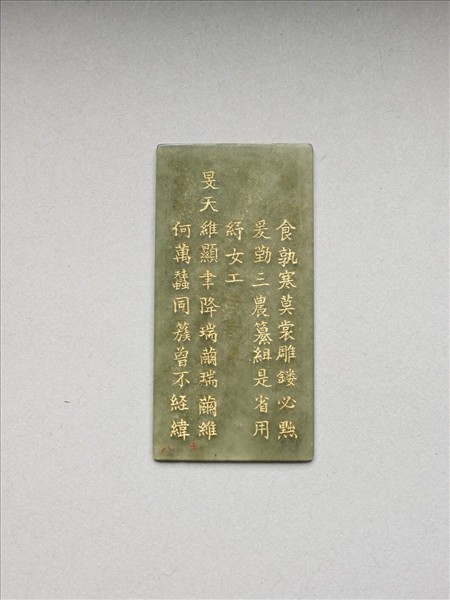 食孰寒莫裳雕鏤必黜
爰勤三農纂緝是省用
紓女工
旻天維顯聿降瑞繭瑞繭維
何萬蠶同蔟曾不經緯